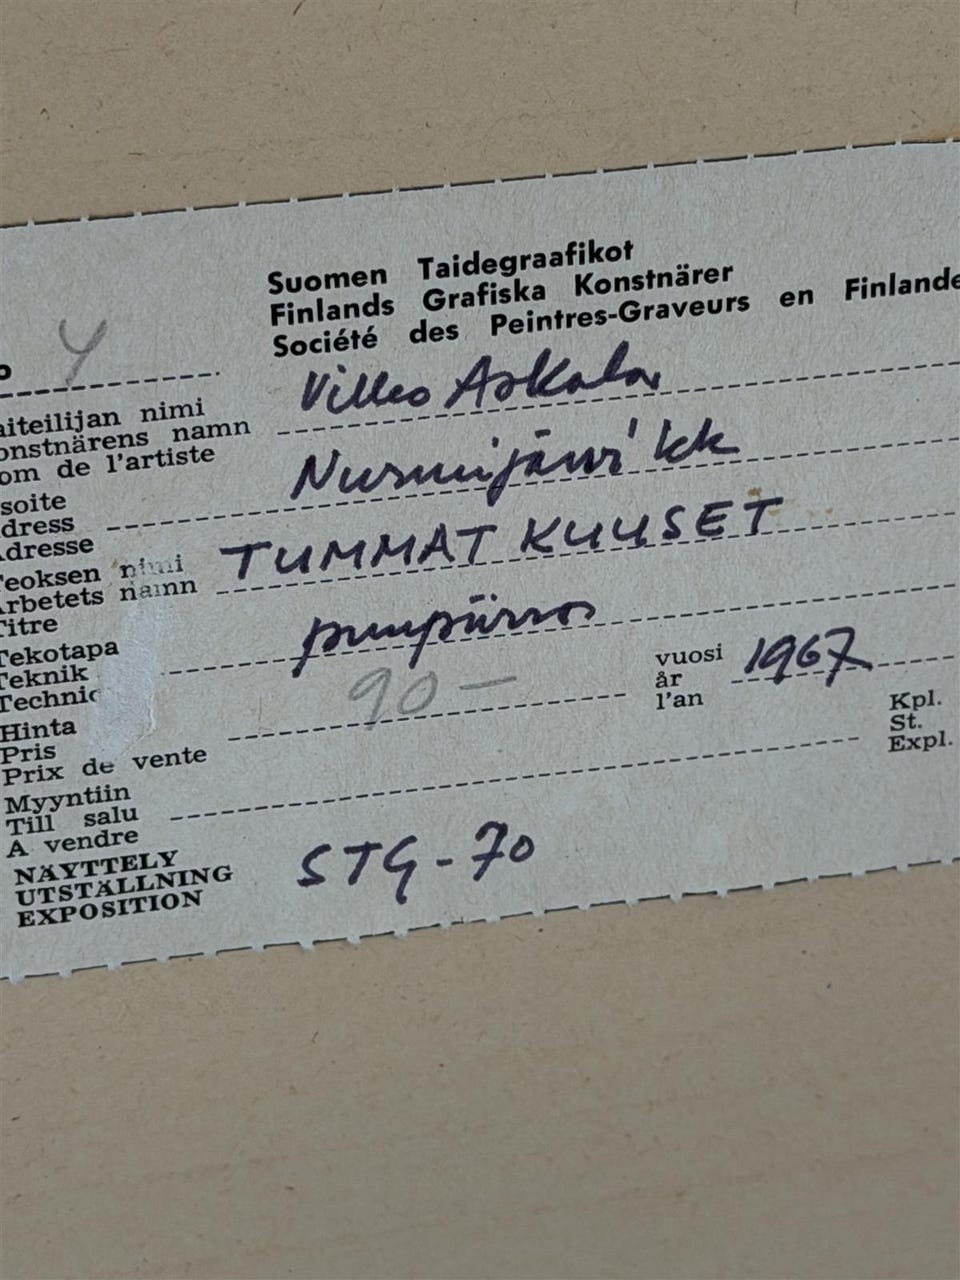 Suomen Taidegraafikot
Finlands Grafiska Konstnärer
Société des Peintres-Graveurs en Finlande
o 4
aiteilijan nimi
onstnärens namn
om de l'artiste
Villeo Askola
soite
dress
dresse
Nurmijärvi kk
eoksen nimi
rbetets namn
Titre
TUMMAT KUUSET
Tekotapa
Teknik
Technic
puupiirros
vuosi
år
l'an
1967
Hinta
Pris
Prix de vente
90 –
Kpl.
St.
Expl.
Myyntiin
Till salu
A vendre
NÄYTTELY
UTSTÄLLNING
EXPOSITION
STG-70